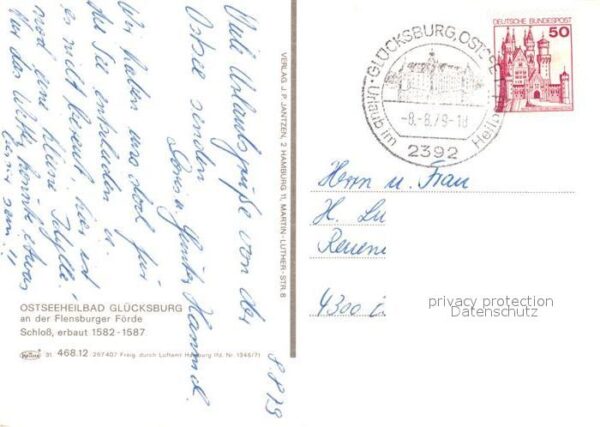 Viele Urlaubsgrüße von der
Ostsee senden
Doris u. Günter
Wir haben uns doch für
die See entschieden u.
es nicht bereut. hier ist
noch eine kleine Idylle.
Nur das Wetter könnte etwas
sein!!
8.8.79
OSTSEEHEILBAD GLÜCKSBURG
an der Flensburger Förde
Schloß, erbaut 1582-1587
31 468.12 267407 Freig. durch Luftamt Hamburg (fd. Nr. 1346/7)
VERLAG J. P. JANTZEN, 2 HAMBURG 11, MARTIN-LUTHER-STR. 8
GLÜCKSBURG, OSTSEE 1
Urlaub im
-8.-8.79-18
2392
DEUTSCHE BUNDESPOST
50
Herrn u. Frau
H. Lu
4300
privacy protection
Datenschutz